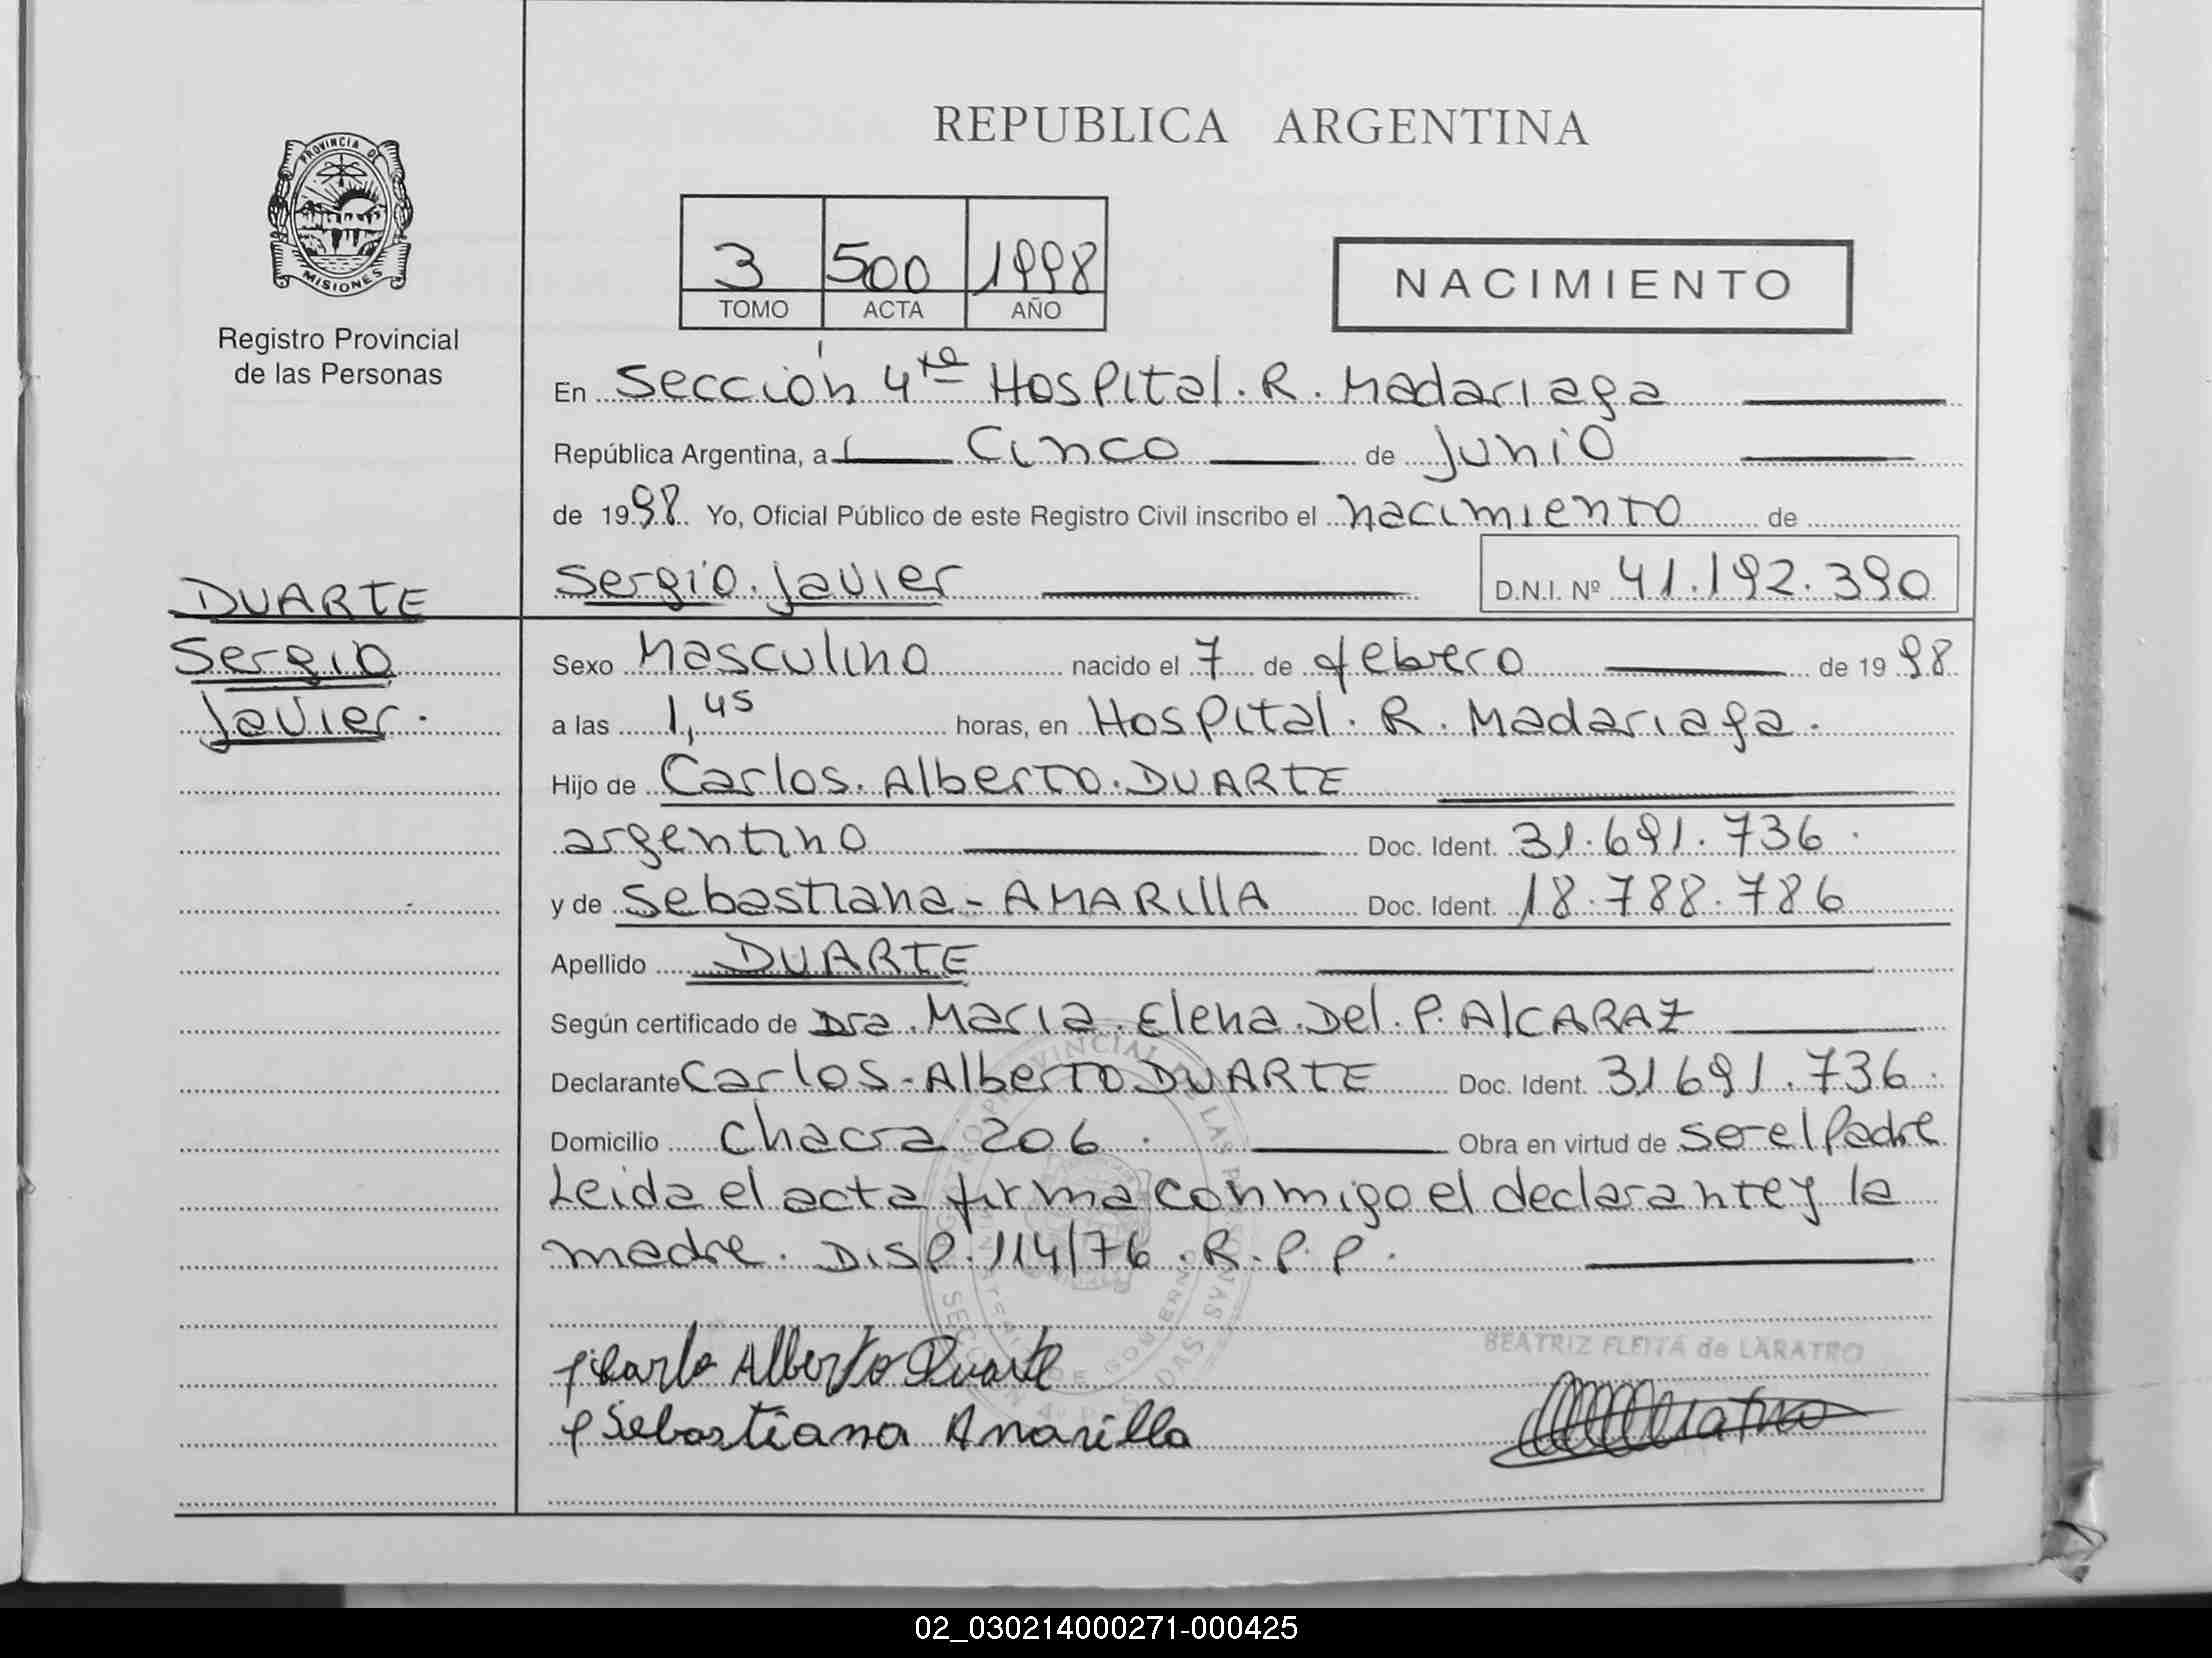 REPUBLICA ARGENTINA
PROVINCIA DE
MISIONES
Registro Provincial
de las Personas
3 500 1998
TOMO ACTA AÑO
NACIMIENTO
En Sección 4ta Hospital. R. Madariaga
República Argentina, a Cinco de Junio
de 1998. Yo, Oficial Público de este Registro Civil inscribo el nacimiento de
Sergio. Javier D.N.I. Nº 41.192.390
DUARTE
Sergio
Javier.
Sexo Masculino nacido el 7 de febrero de 1998
a las 1,45 horas, en Hospital. R. Madariaga.
Hijo de Carlos. Alberto. DUARTE
argentino Doc. Ident. 31.691.736.
y de Sebastiana - AMARIllA Doc. Ident. 18.788.786
Apellido DUARTE
Según certificado de Dra. Maria. Elena. Del. P. AlCARAZ
Declarante Carlos - Alberto DUARTE Doc. Ident. 31.691.736.
Domicilio Chacra 206. Obra en virtud de ser el Padre
Leida el acta firma conmigo el declarante y la
madre. DISP. 114/76. R.P.P.
BEATRIZ FLEITA de LARATRO
Carlo Alberto Duarte
Sebastiana Amarilla
02_030214000271-000425